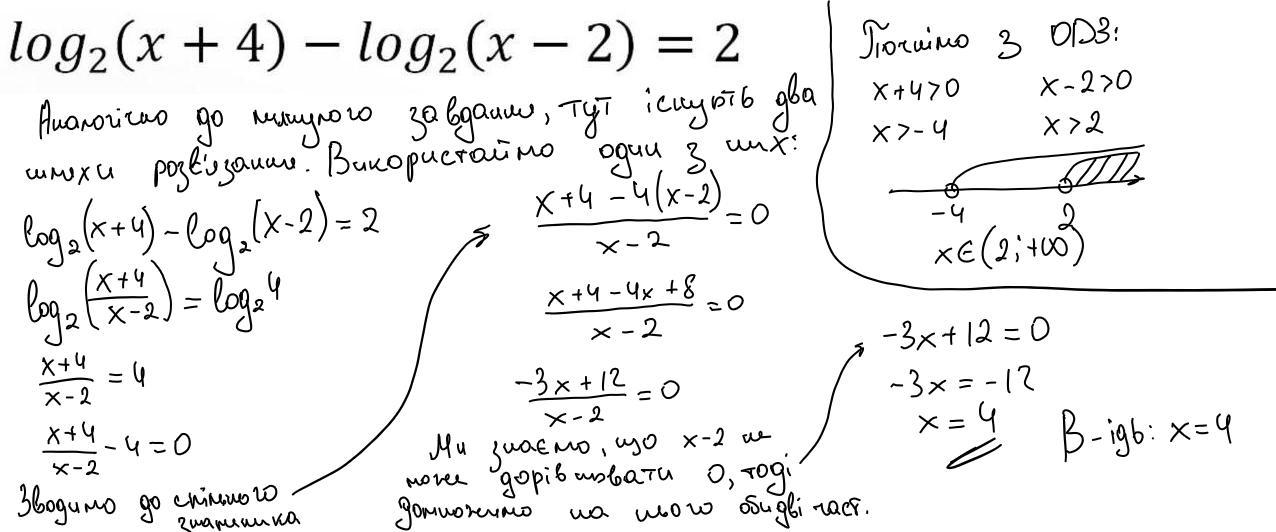 log₂(x + 4) − log₂(x − 2) = 2
Аналогічно до минулого завдання, тут існують два
шляхи розв'язання. Використаймо один з них:
log₂(x+4) - log₂(x-2) = 2
log₂((x+4)/(x-2)) = log₂4
(x+4)/(x-2) = 4
(x+4)/(x-2) - 4 = 0
Зводимо до спільного
знаменника
(x+4 - 4(x-2))/(x-2) = 0
(x+4-4x+8)/(x-2) = 0
(-3x+12)/(x-2) = 0
Ми знаємо, що x-2 не
може дорівнювати 0, тоді
домножимо на нього обидві част.
Почнімо з ОДЗ:
x+4>0 x-2>0
x>-4 x>2
-4 2
x∈(2;+∞)
-3x+12=0
-3x=-12
x=4
В-ідь: x=4